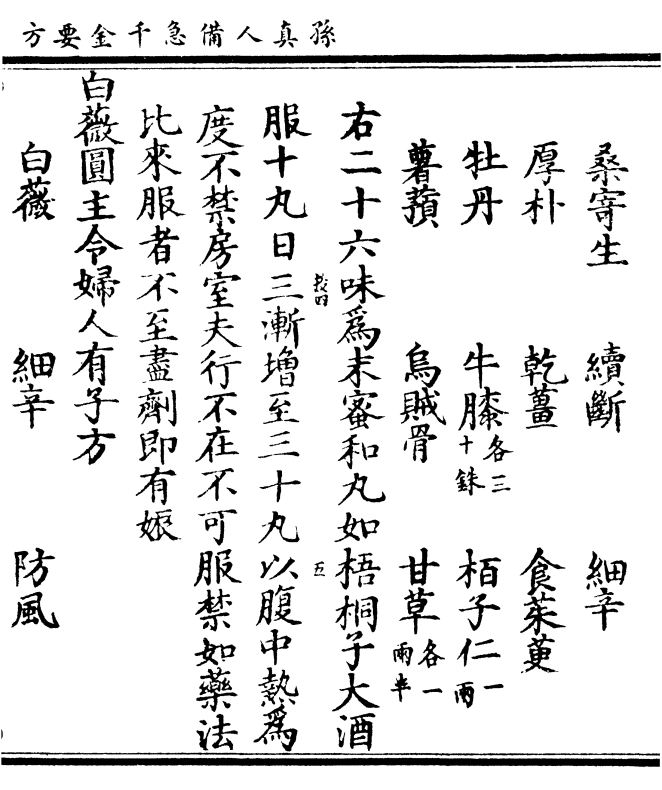 孫真人備急千金要方
桑寄生 續斷 細辛
厚朴 乾薑 食茱萸
牡丹 牛膝各三十銖 栢子仁一兩
薯蕷 烏賊骨 甘草各一兩半
右二十六味為末蜜和丸如梧桐子大酒
服十丸日三漸增至三十丸以腹中熱為
度不禁房室夫行不在不可服禁如藥法
比來服者不至盡劑即有娠
白薇圓主令婦人有子方
白薇 細辛 防風